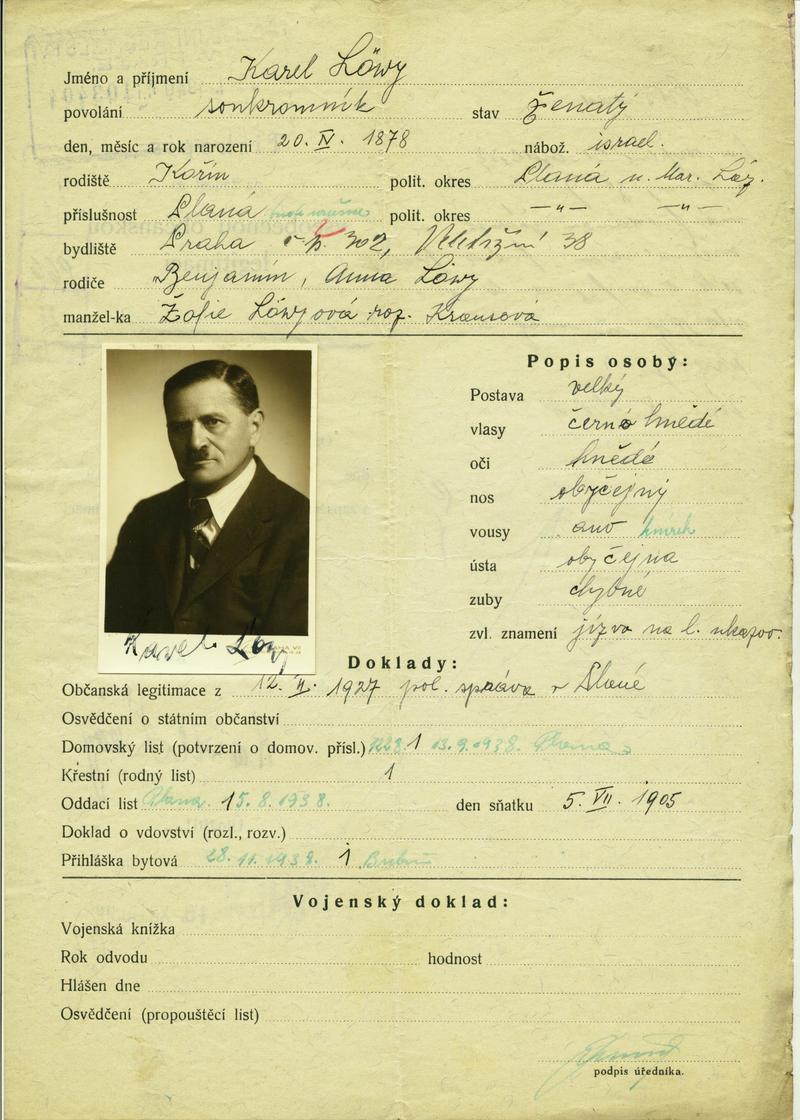 Jméno a příjmení Karel Löwy
povolání soukromník stav ženatý
den, měsíc a rok narození 20. IV. 1878 nábož. israel.
rodiště Kořín polit. okres Planá u. Mar. Láz.
příslušnost Planá polit. okres — „ — — „ —
bydliště Praha č. p. 302, Veletržní 38
rodiče Benjamín, Anna Löwy
manžel-ka Žofie Löwyová roz. Krausová
Popis osoby:
Postava velký
vlasy černo hnědé
oči hnědé
nos obyčejný
vousy ano knírek
ústa obyčejna
zuby chybné
zvl. znamení jizva na l. ukazov.
Karel Löwy
Doklady:
Občanská legitimace z 12. II. 1927 pol. správa v Plané
Osvědčení o státním občanství
Domovský list (potvrzení o domov. přísl.) 1 13.9.1938.
Křestní (rodný list) 1
Oddací list Planá. 15.8.1938. den sňatku 5. VII. 1905
Doklad o vdovství (rozl., rozv.)
Přihláška bytová 28.11.1938. 1
Vojenský doklad:
Vojenská knížka
Rok odvodu hodnost
Hlášen dne
Osvědčení (propouštěcí list)
podpis úředníka.